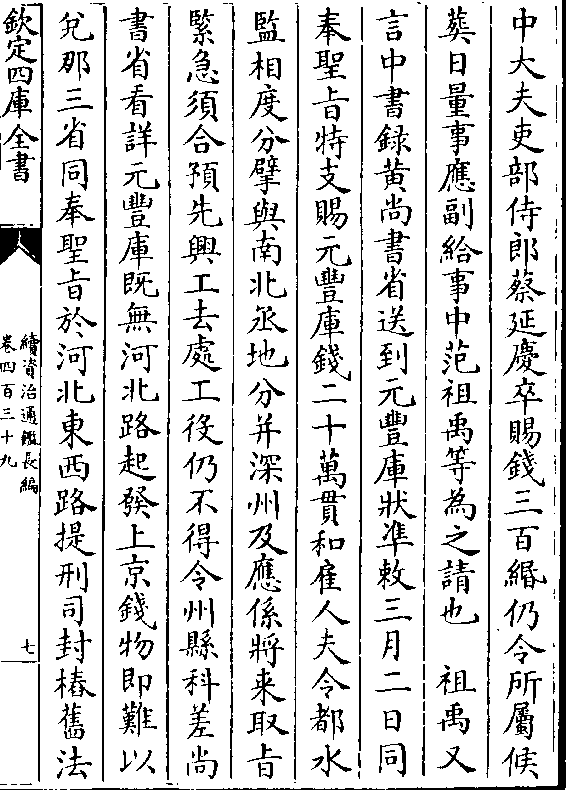 中大夫吏部侍郎蔡延慶卒賜錢三百緡仍令所屬候
葬日量事應副給事中范祖禹等為之請也　祖禹又
言中書録黄尚書省送到元豐庫狀準敕三月二日同
奉聖旨特支賜元豐庫錢二十萬貫和雇人夫令都水
監相度分擘與南北丞地分并深州及應係將来取旨
緊急須合預先興工去處工役仍不得令州縣科差尚
書省看詳元豐庫既無河北路起發上京錢物即難以
兌那三省同奉聖旨於河北東西路提刑司封樁舊法
欽定四庫全書
續資治通鑑長編
卷四百三十九
七